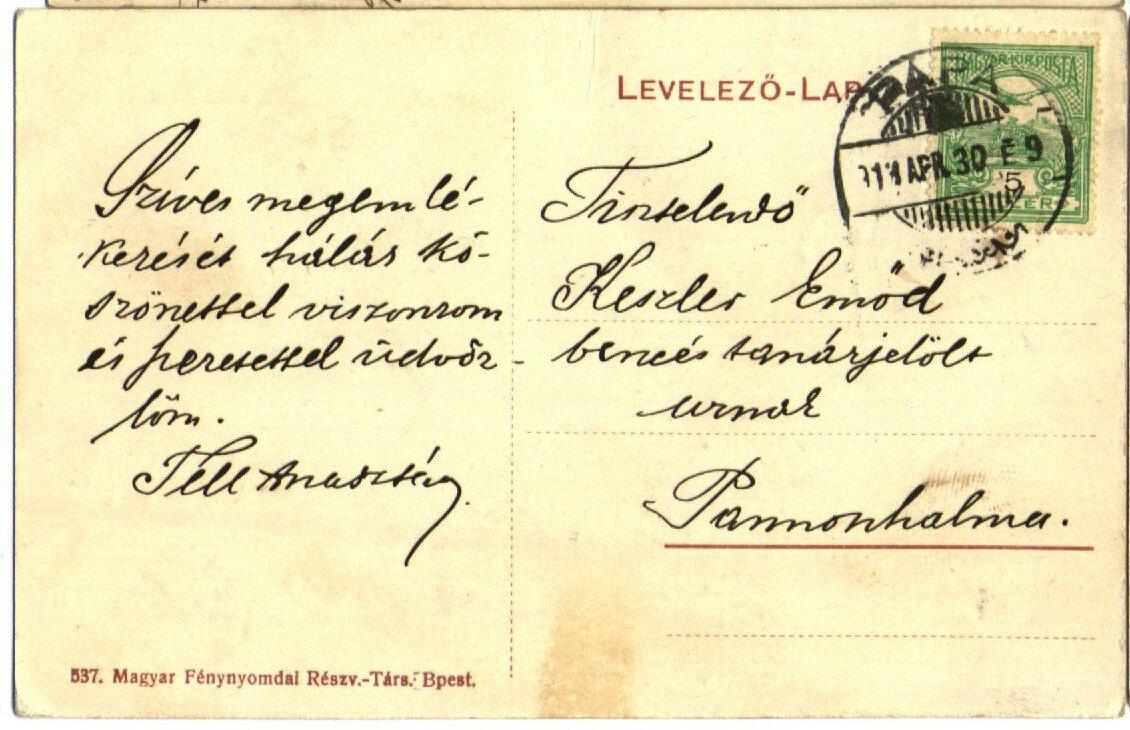 LEVELEZŐ-LAP
MAGYAR KIR. POSTA
PÁPA
911 APR. 30 E 9
5
Szíves megemlé-
kerését hálás kö-
szönettel viszonzom
és szeretettel üdvöz-
löm.
Tell Anasztáz
Tisztelendő
Keszler Emőd
bencés tanárjelölt
urnak
Pannonhalma.
537. Magyar Fénynyomdai Részv.-Társ. Bpest.